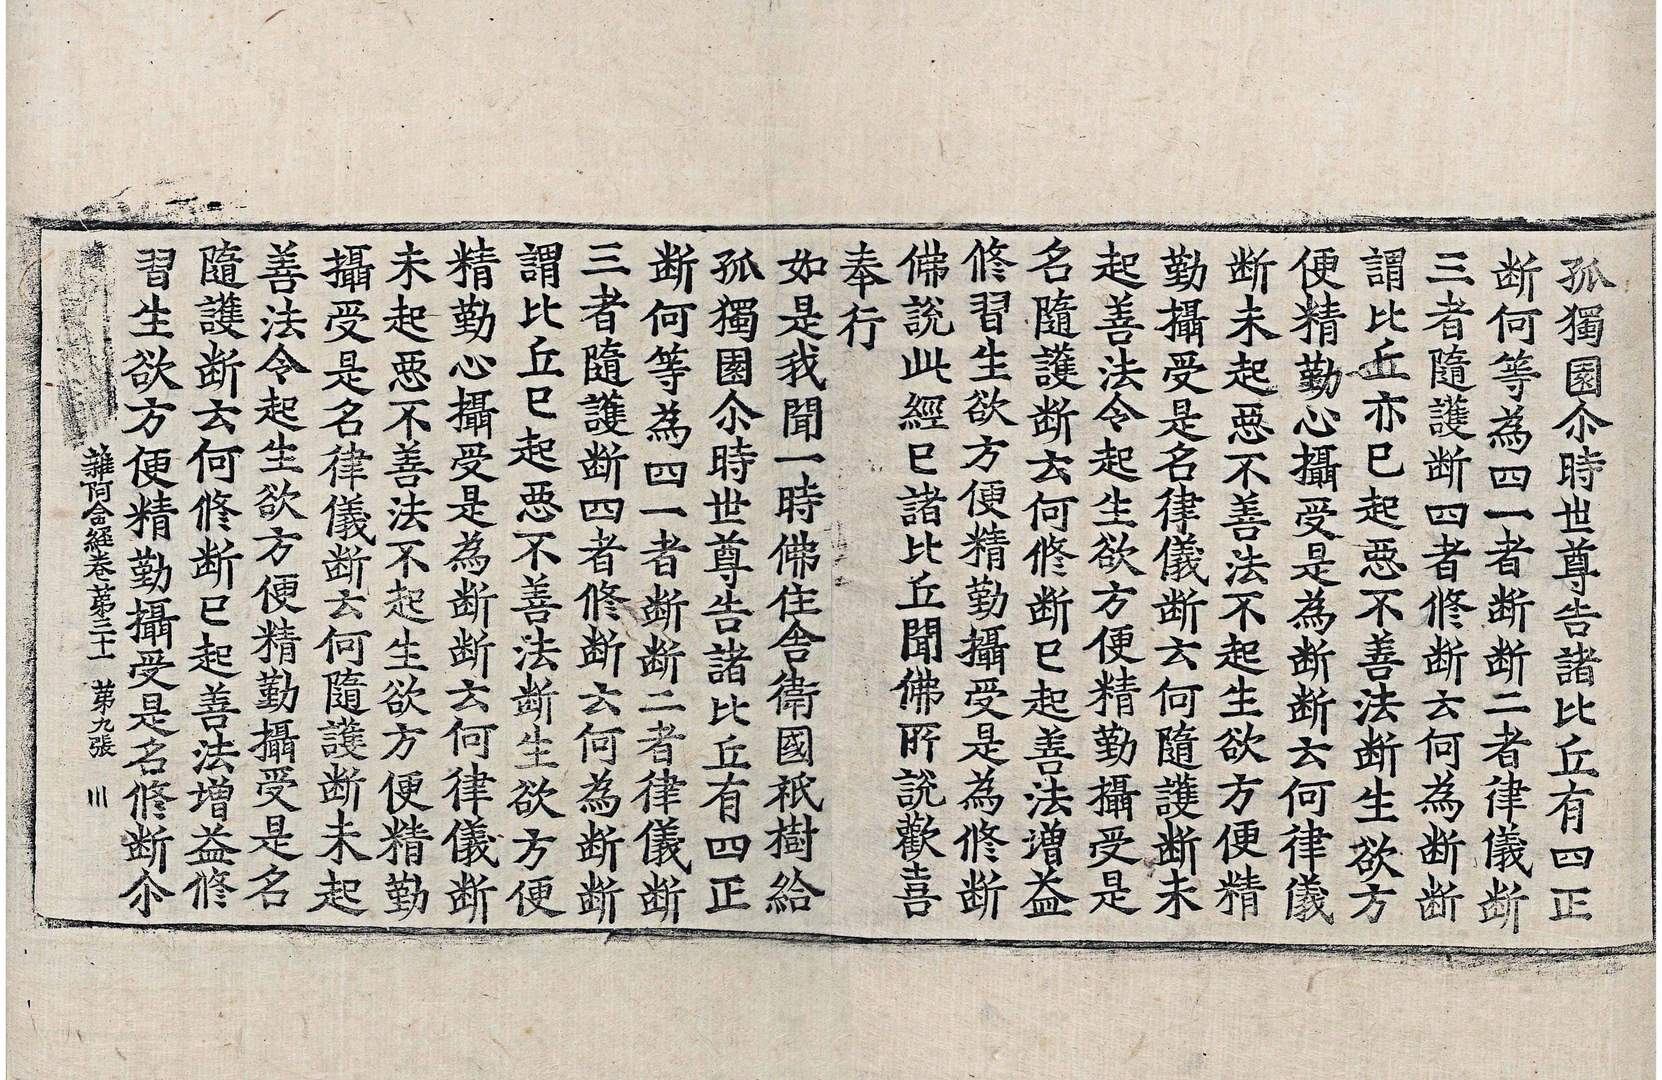 孤獨園尒時世尊告諸比丘有四正
断何等為四一者断断二者律儀断
三者隨護断四者修断云何為断断
謂比丘亦已起悪不善法断生欲方
便精勤心攝受是為断断云何律儀
断未起悪不善法不起生欲方便精
勤攝受是名律儀断云何隨護断未
起善法令起生欲方便精勤攝受是
名隨護断云何修断已起善法增益
修習生欲方便精勤攝受是為修断
佛說此經已諸比丘聞佛所說歡喜
奉行
如是我聞一時佛住舎衛國祇樹給
孤獨園尒時世尊告諸比丘有四正
断何等為四一者断断二者律儀断
三者隨護断四者修断云何為断断
謂比丘已起悪不善法断生欲方便
精勤心攝受是為断断云何律儀断
未起悪不善法不起生欲方便精勤
攝受是名律儀断云何隨護断未起
善法令起生欲方便精勤攝受是名
隨護断云何修断已起善法增益修
習生欲方便精勤攝受是名修断尒
雜阿含經卷第三十一 第九張 川